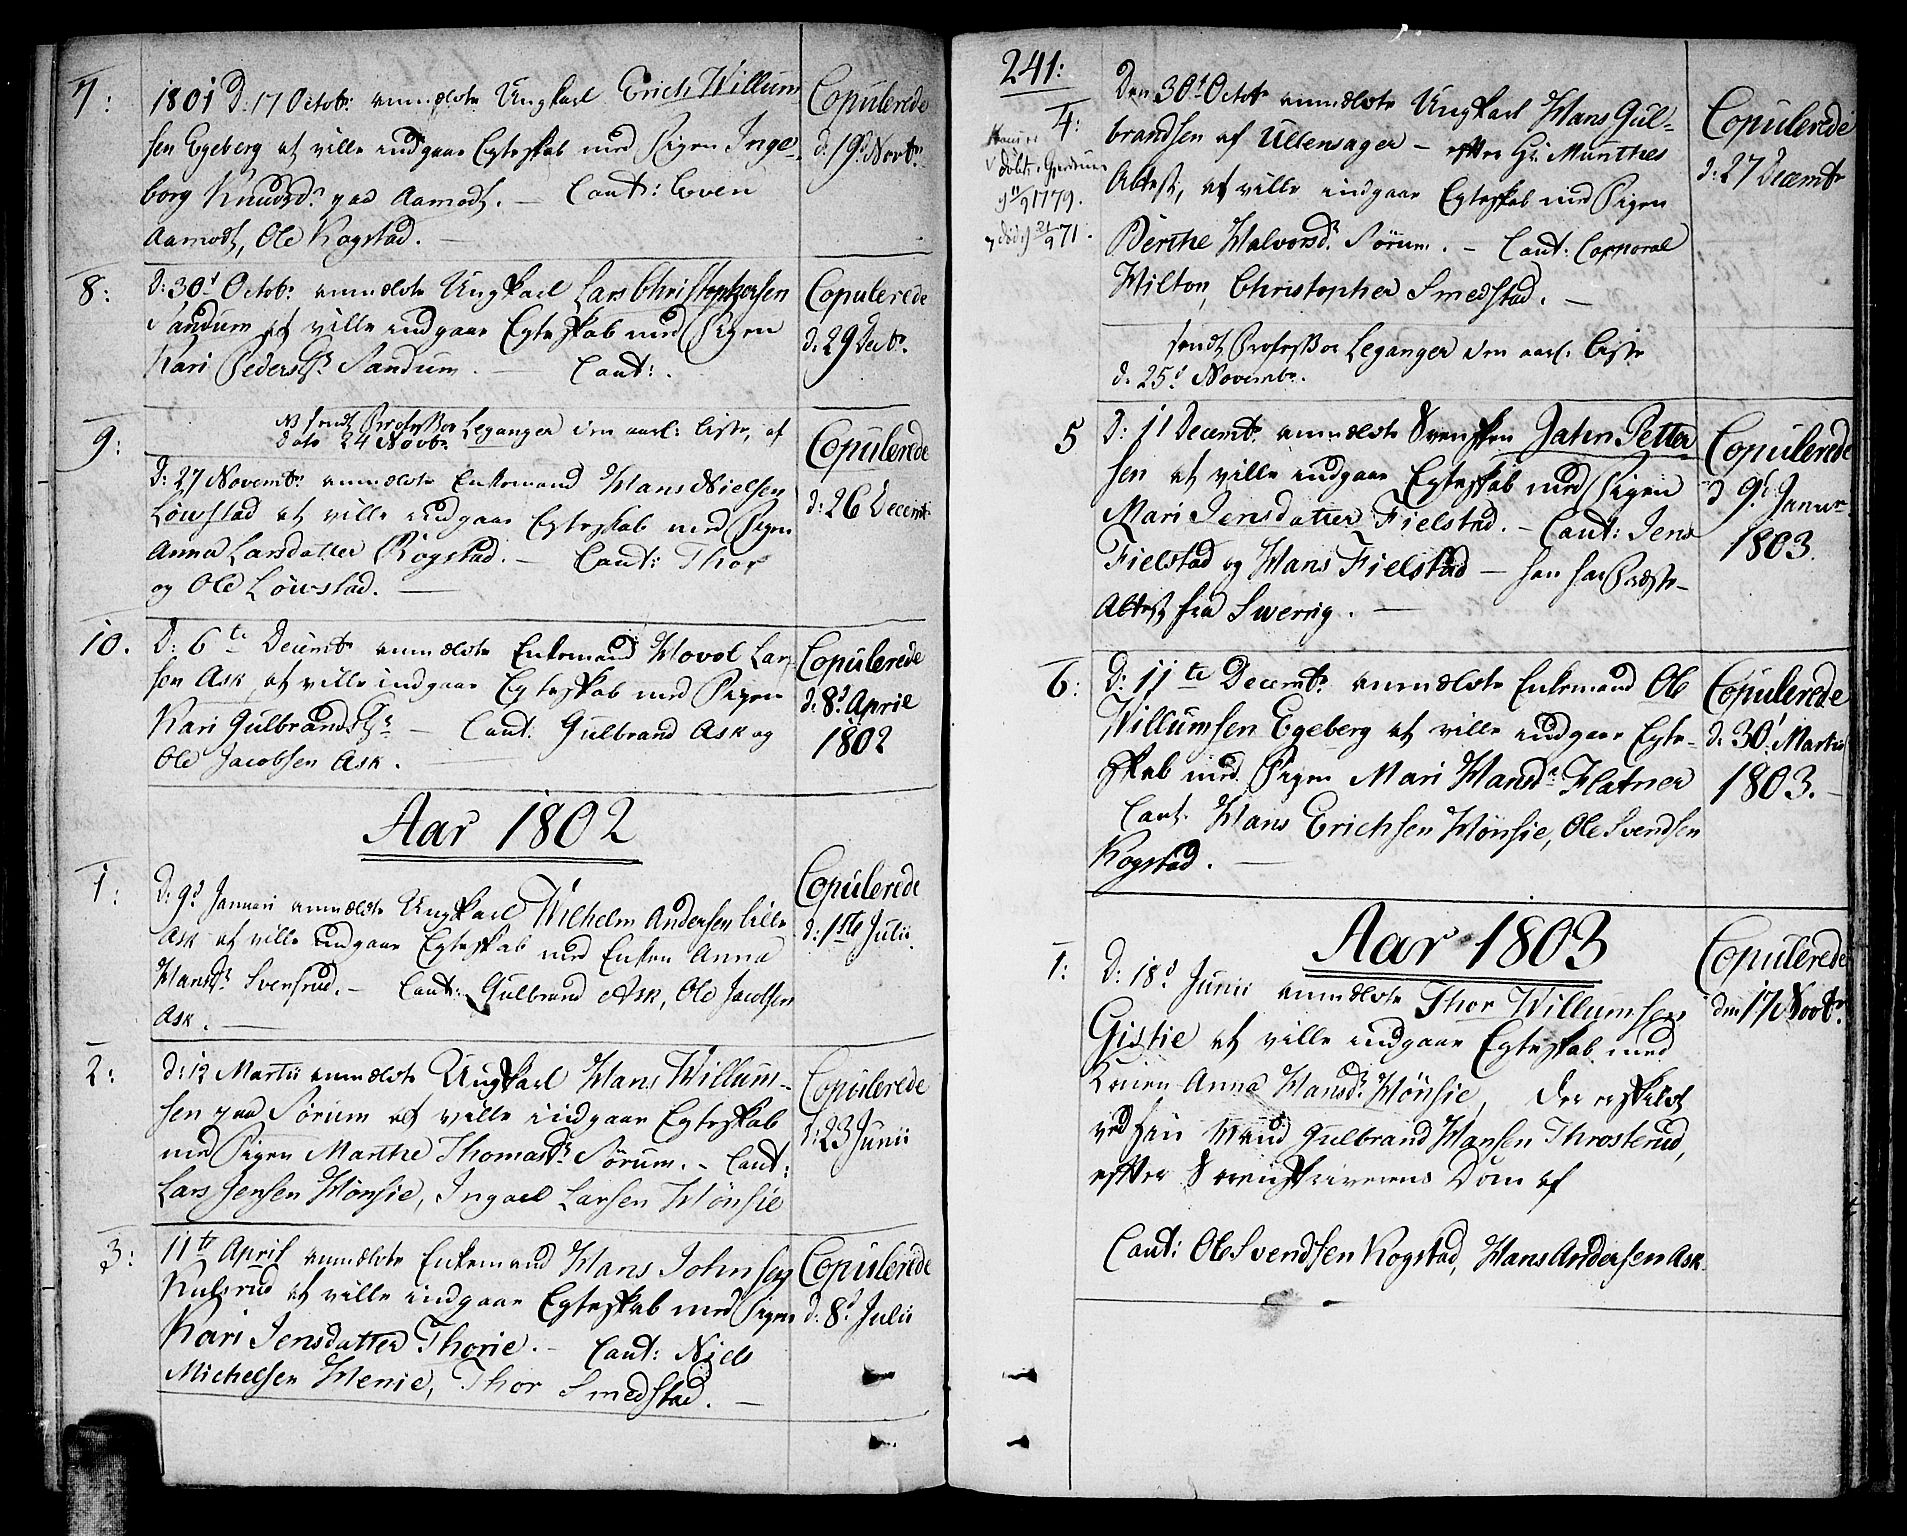 7:
1801 D: 17 Octobr anmældte Ungkarl Erich Willum
sen Egeberg at ville indgaae Egteskab med Pigen Inge-
borg Knudsdr paa Aamodt. — Caut: Even
Aamodt, Ole Kogstad. —
Copulerede
d: 19d Novbr.
8:
D: 30d Octobr anmældte Ungkarl Lars Christophersen
Sandum at ville indgaae Egteskab med Pigen
Kari Pedersdr Sandum. — Caut: .
Copulerede
d: 29 Decbr.
9:
NB sendt Professor Leganger den aarl: Liste, af
Dato 24 Novbr.
D: 27 Novembr anmældte Enkemand Hans Nielsen
Løwstad at ville indgaae Egteskab med Pigen
Anna Larsdatter Rogstad. — Caut: Thor
og Ole Løwstad. —
Copulerede
d: 26 Decemb
10.
D: 6te Decembr anmældte Enkemand Hovol Lar-
sen Ask, at ville indgaae Egteskab med Pigen
Kari Gulbrandsdr — Caut: Gulbrand Ask og
Ole Jacobsen Ask. —
Copulerede
d: 8d April
1802
Aar 1802
1:
D: 9d Januari anmældte Ungkarl Wilhelm Andersen Lille
Ask at ville indgaae Egteskab med Enken Anna
Hansdr Svensrud. — Caut: Gulbrand Ask, Ole Jacobsen
Ask. —
Copulerede
d: 1ste Julii
2:
D: 12 Martii anmældte Ungkarl Hans Willum-
sen paa Sørum at ville indgaae Egteskab
med Pigen Marthe Thomasdr Sørum. — Caut:
Lars Jensen Hønsie, Larsen Hønsie
Copulerede
d: 23 Junii
3:
11te April anmældte Enkemand Hans Johnsen
Kulsrud at ville indgaae Egteskab med Pigen
Kari Jensdatter Thorie. — Caut: Niels
Michelsen Henie, Thor Smedstad. —
Copulerede
d: 8d Julii
241:
4:
døbt i Gjerdrum
9 1779.
død 21/9 71.
Den 30d Octobr anmældte Ungkarl Hans Gul-
brandsen af Ullensager — efter Hr Munthes
Attest, at ville indgaae Egteskab med Pigen
Berthe Halvorsdr Sørum. — Caut: Corporal
Wilton, Christopher Smedstad. —
Copulerede
d: 27 Decembr
sendt Professor Leganger den aarl: Liste
d: 25d Novembr.
5
D: 11 Decembr anmældte Svensken Jahn Petter
sen at ville indgaae Egteskab med Pigen
Mari Jensdatter Fielstad. — Caut: Jens
Fielstad og Hans Fielstad — han har Præste-
Attest fra Swerrig. —
Copulerede
d 9d Januar
1803.
6:
D: 11te Decembr anmældte Enkemand Ole
Willumsen Egeberg at ville indgaae Egte-
skab med Pigen Mari Hansdr Flatner
Caut. Hans Erichsen Hønsie, Ole Svendsen
Kogstad. —
Copulerede
d: 30d Martii
1803. —
Aar 1803
1:
D: 18d Junii anmældte Thor Willumsen
Gistie at ville indgaae Egteskab med
Konen Anna Hansdr Hønsie, der er skildt
ved sin Mand Gulbrand Hansen Throsterud,
efter Sorenskriverens Dom af
Caut: Ole Svendsen Kogstad, Hans Andersen Ask.
Copulerede
den 17 Novbr.